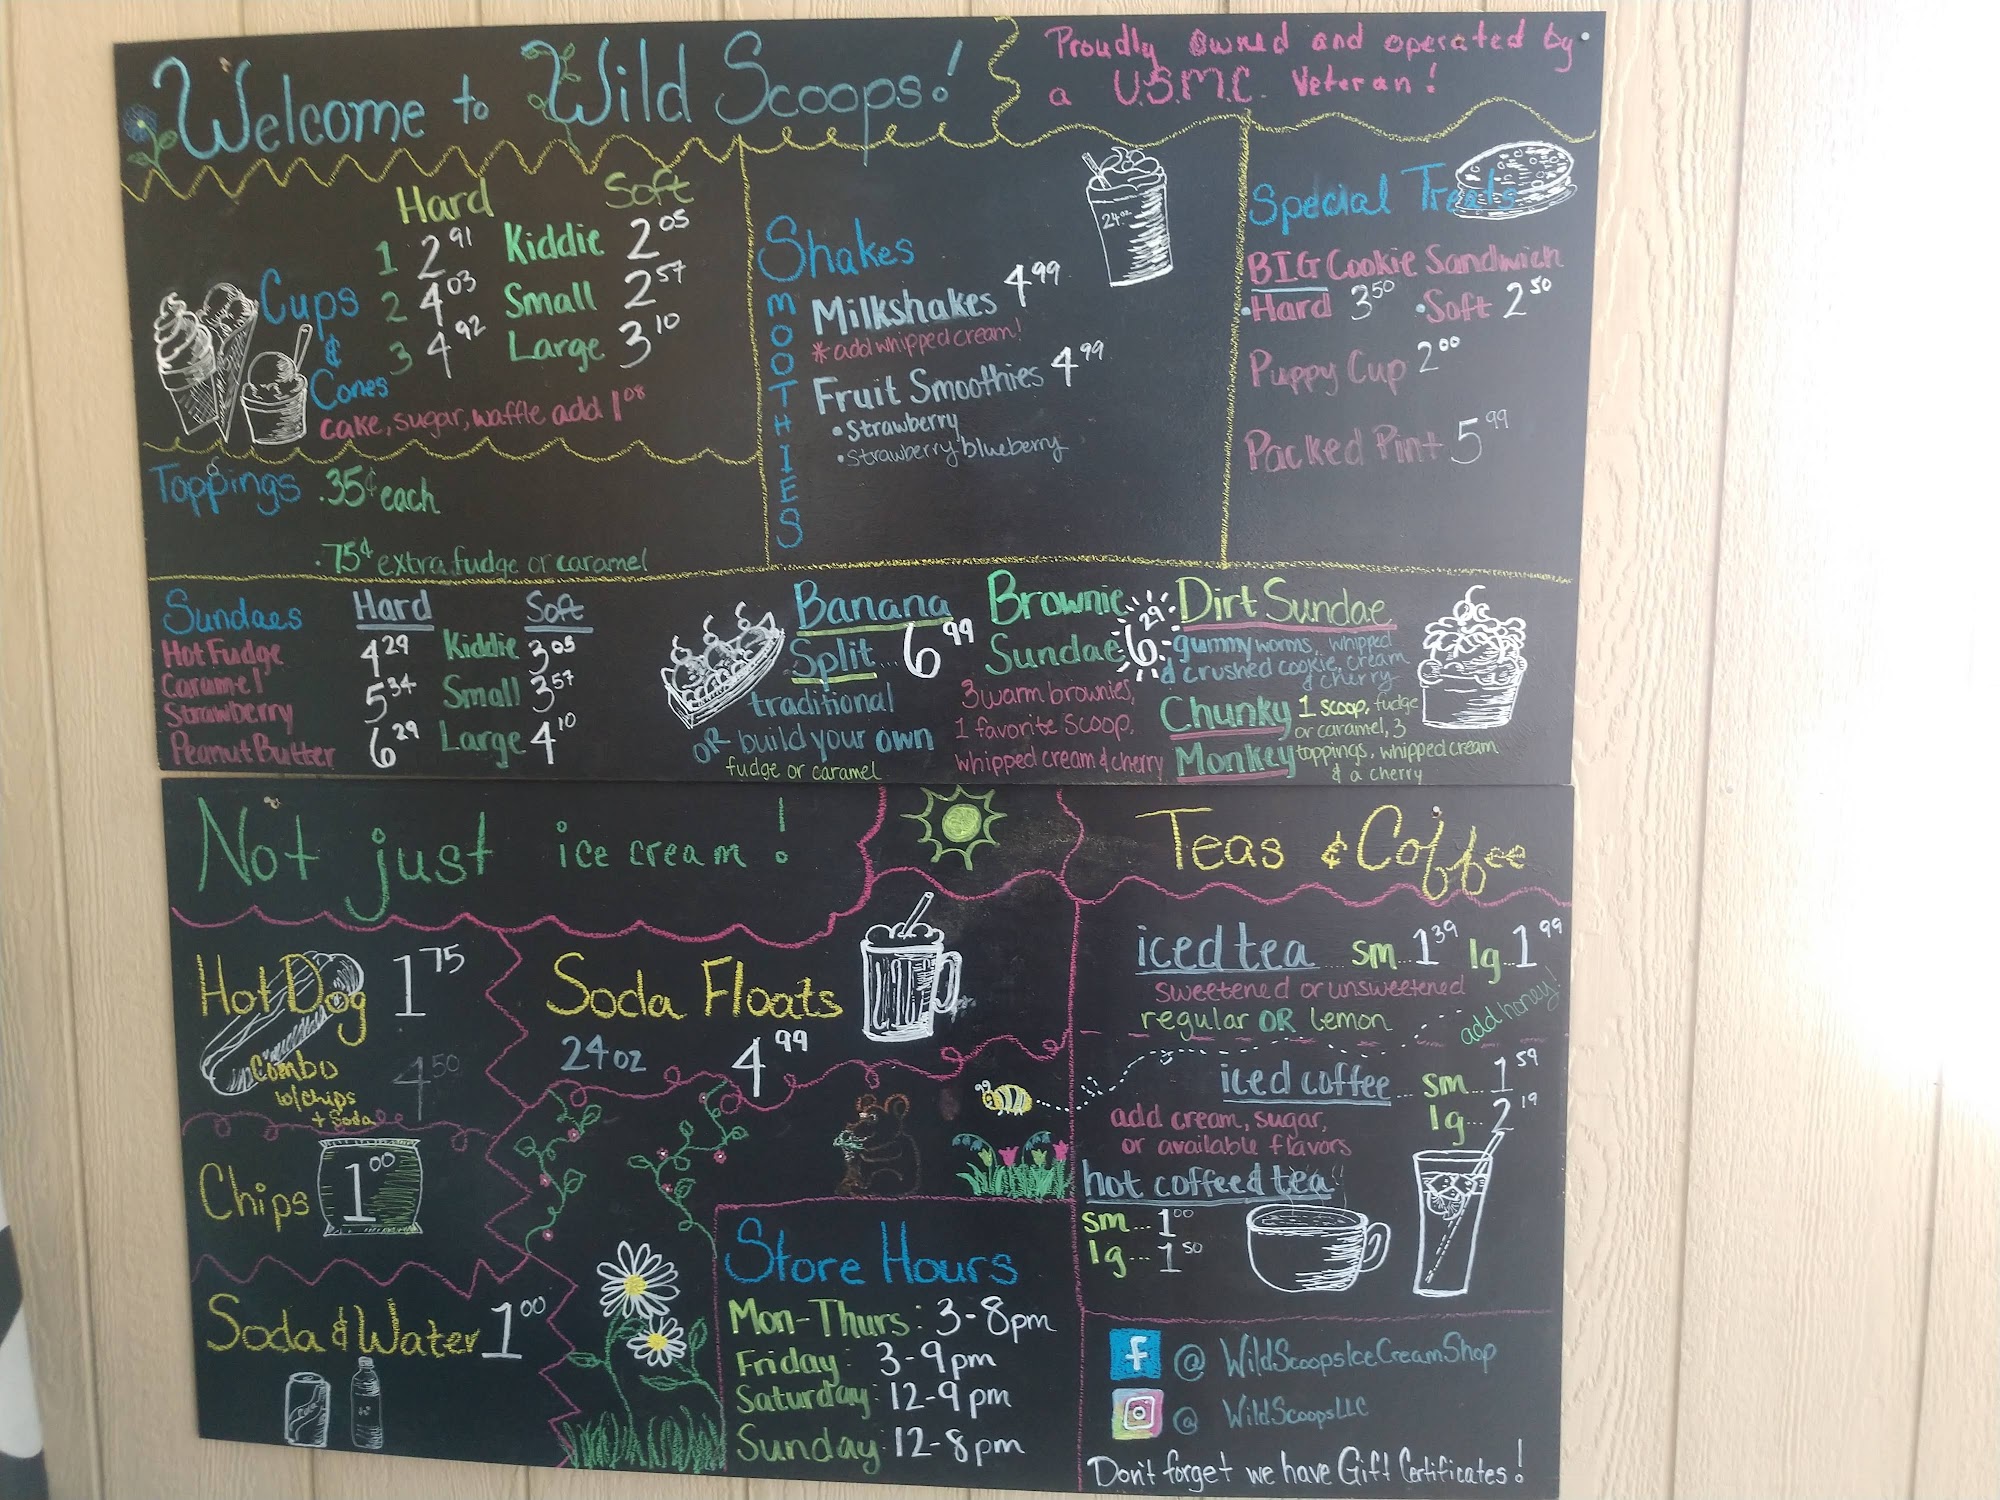 Welcome to Wild Scoops!
Proudly Owned and operated by
a U.S.M.C. Veteran!
Cups
&
Cones
Hard
1 2.91
2 4.03
3 4.92
Soft
Kiddie 2.05
Small 2.57
Large 3.10
cake, sugar, waffle add 1.08
Toppings .35¢ each
.75¢ extra fudge or caramel
Shakes
SMOOTHIES
24oz
Milkshakes 4.99
*add whipped cream!
Fruit Smoothies 4.99
• Strawberry
• Strawberry blueberry
Special Treats
BIG Cookie Sandwich
• Hard 3.50 • Soft 2.50
Puppy Cup 2.00
Packed Pint 5.99
Sundaes
Hot Fudge
Caramel
Strawberry
Peanut Butter
Hard
4.29
5.34
6.29
Soft
Kiddie 3.05
Small 3.57
Large 4.10
Banana
Split... 6.99
traditional
OR build your own
fudge or caramel
Brownie
Sundae 6.29
3 warm brownies,
1 favorite scoop,
whipped cream & cherry
Dirt Sundae
gummy worms, whipped
& crushed cookie, cream
& cherry
Chunky
Monkey
1 scoop, fudge
or caramel, 3
toppings, whipped cream
& a cherry
Not just ice cream!
Hot Dog 1.75
Combo 4.50
w/chips
+ Soda
Chips 1.00
Soda & Water 1.00
Soda Floats
24oz 4.99
Store Hours
Mon-Thurs: 3-8pm
Friday: 3-9pm
Saturday: 12-9pm
Sunday: 12-8pm
Teas & Coffee
iced tea ... sm...1.39 lg..1.99
sweetened or unsweetened
regular OR lemon
add honey!
iced coffee ... sm...1.59
lg...2.19
add cream, sugar,
or available flavors
hot coffee & tea
sm...1.00
lg...1.50
f @ WildScoopsIceCreamShop
@ WildScoopsLLC
Don't forget we have Gift Certificates!